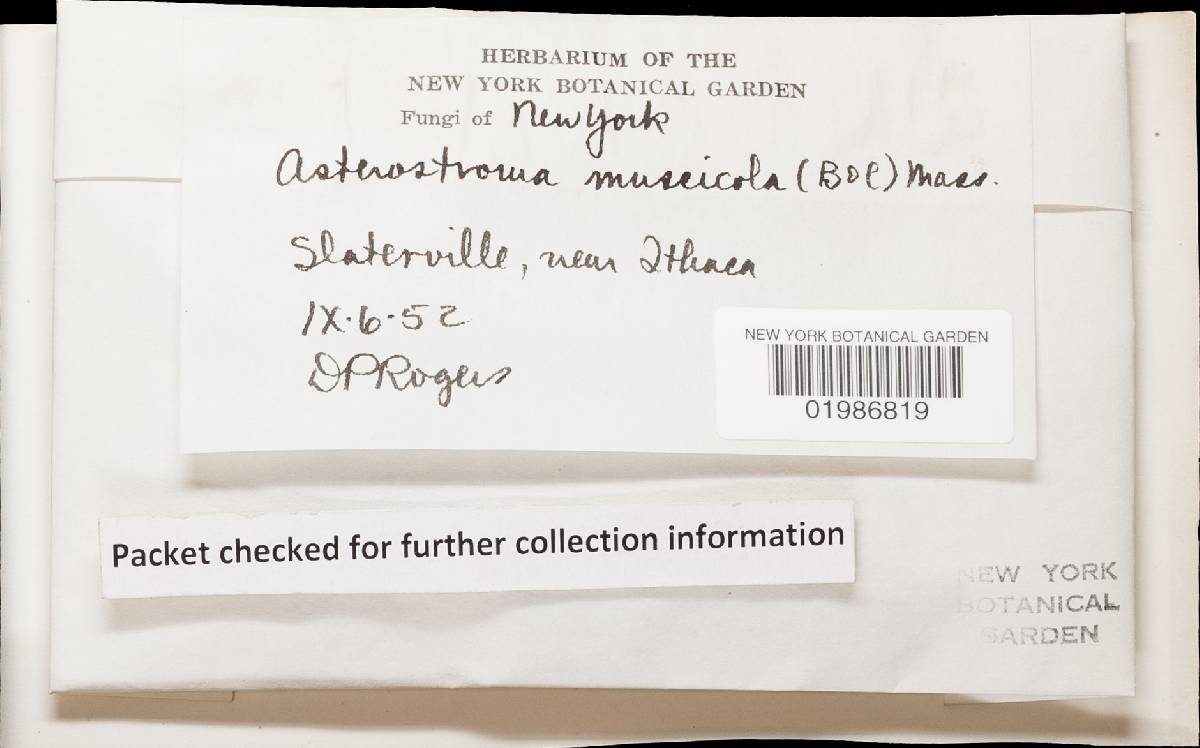 HERBARIUM OF THE
NEW YORK BOTANICAL GARDEN
Fungi of New York
Asterostroma muscicola (B & C) Mass.
Slaterville, near Ithaca
IX·6·52
DPRogers
NEW YORK BOTANICAL GARDEN
01986819
Packet checked for further collection information
NEW YORK
BOTANICAL
GARDEN